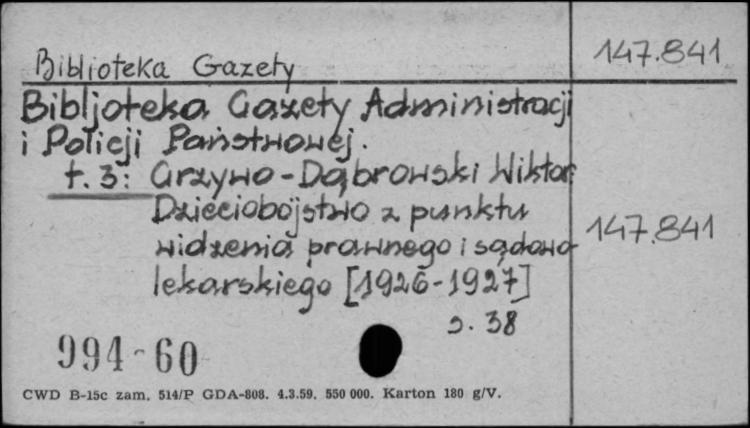 Biblioteka Gazety 147.841
Bibljoteka Gazety Administracji
i Policji Państwowej.
t. 3: Grzywo-Dąbrowski Wiktor
Dzieciobójstwo z punktu
widzenia prawnego i sądowo 147.841
lekarskiego [1926-1927]
s. 38
994-60
CWD B-15c zam. 514/P GDA-808. 4.3.59. 550 000. Karton 180 g/V.